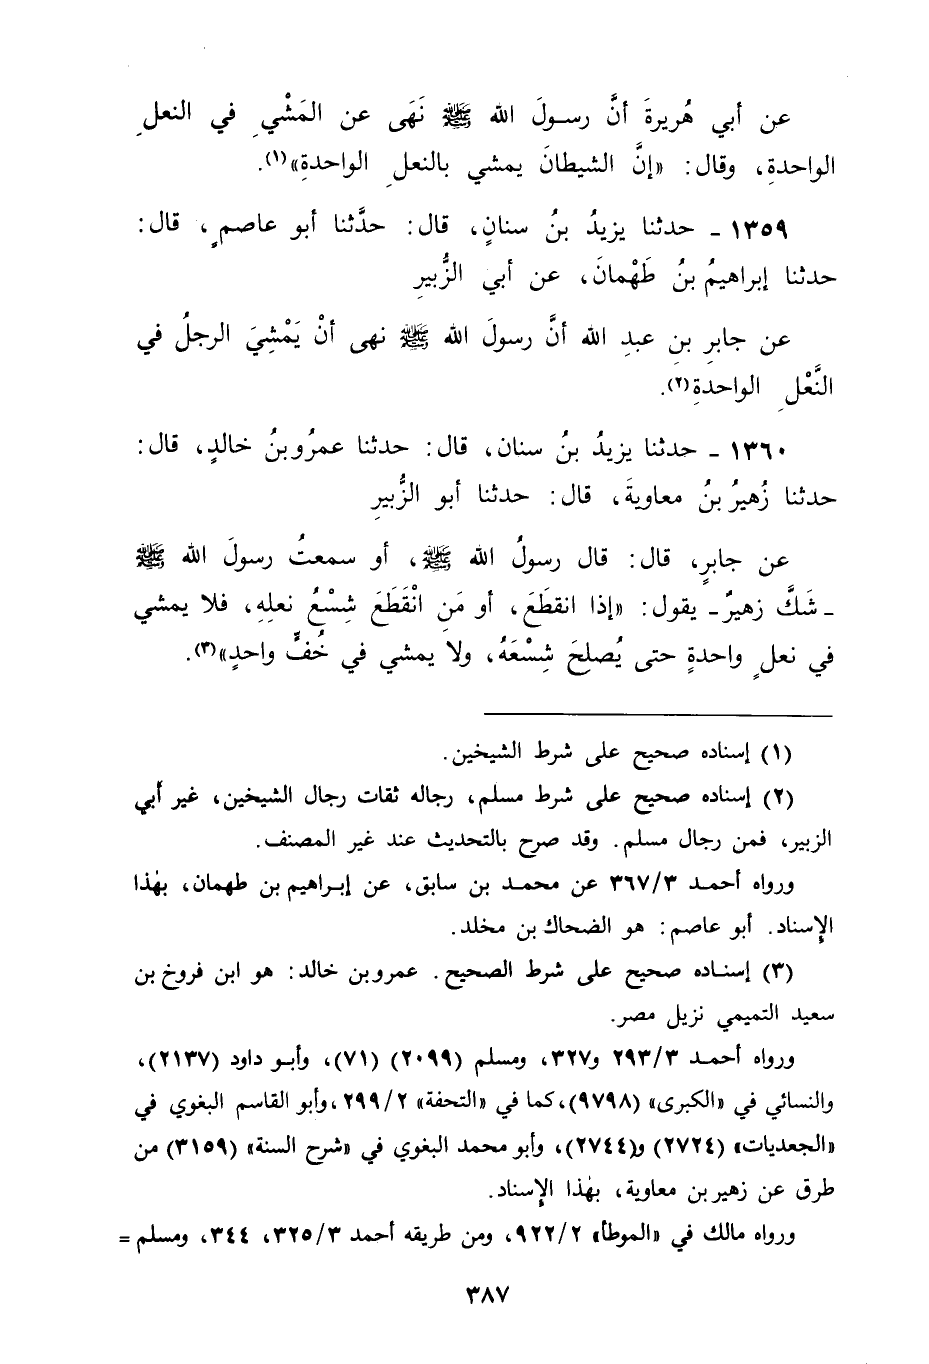 عن أبي هُريرةَ أنَّ رسـولَ الله ﷺ نَهَى عن المَشْيِ في النعلِ
الواحدةِ، وقال: «إنَّ الشيطانَ يمشي بالنعلِ الواحدةِ»(١).
١٣٥٩ ـ حدثنا يزيدُ بنُ سنانٍ، قال: حدَّثنا أبو عاصمٍ، قال:
حدثنا إبراهيمُ بنُ طَهْمانَ، عن أبي الزُّبيرِ
عن جابرِ بنِ عبدِ الله أنَّ رسولَ الله ﷺ نهى أنْ يَمْشِيَ الرجلُ في
النَّعْلِ الواحدةِ(٢).
١٣٦٠ ـ حدثنا يزيدُ بنُ سنان، قال: حدثنا عمرُو بنُ خالدٍ، قال:
حدثنا زُهيرُ بنُ معاويةَ، قال: حدثنا أبو الزُّبيرِ
عن جابرٍ، قال: قال رسولُ الله ﷺ، أو سمعتُ رسولَ الله ﷺ
ـ شَكَّ زهيرٌ ـ يقول: «إذا انقطَعَ، أو مَنِ انْقَطَعَ شِسْعُ نعلِهِ، فلا يمشي
في نعلٍ واحدةٍ حتى يُصلِحَ شِسْعَهُ، ولا يمشي في خُفٍّ واحدٍ»(٣).
(١) إسناده صحيح على شرط الشيخين.
(٢) إسناده صحيح على شرط مسلم، رجاله ثقات رجال الشيخين، غير أبي
الزبير، فمن رجال مسلم. وقد صرح بالتحديث عند غير المصنف.
ورواه أحمـد ٣٦٧/٣ عن محمـد بن سابق، عن إبـراهيم بن طهمان، بهٰذا
الإسناد. أبو عاصم: هو الضحاك بن مخلد.
(٣) إسنـاده صحيح على شرط الصحيح. عمرو بن خالد: هو ابن فروخ بن
سعيد التميمي نزيل مصر.
ورواه أحمـد ٢٩٣/٣ و٣٢٧، ومسلم (٢٠٩٩) (٧١)، وأبـو داود (٢١٣٧)،
والنسائي في «الكبرى» (٩٧٩٨)، كما في «التحفة» ٢٩٩/٢، وأبو القاسم البغوي في
«الجعديات» (٢٧٢٤) و(٢٧٤٤)، وأبو محمد البغوي في «شرح السنة» (٣١٥٩) من
طرق عن زهير بن معاوية، بهٰذا الإسناد.
ورواه مالك في «الموطأ» ٩٢٢/٢، ومن طريقه أحمد ٣٢٥/٣، ٣٤٤، ومسلم =
٣٨٧